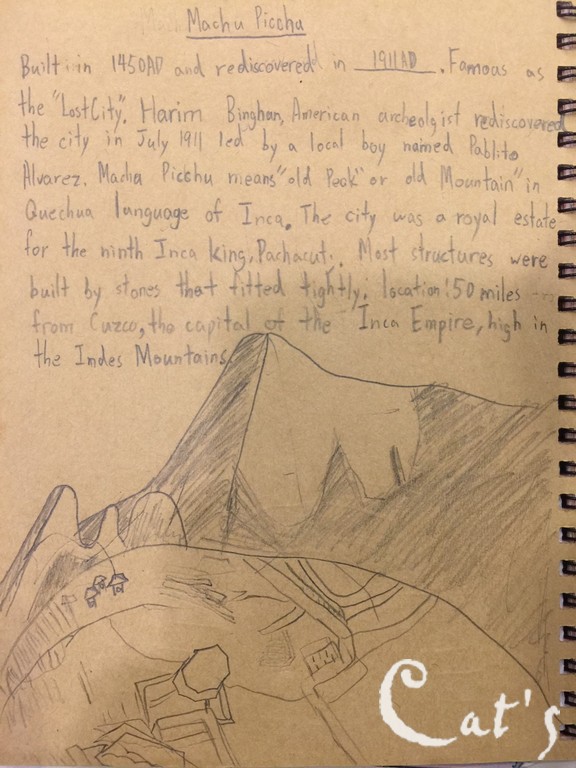 Machu Picchu
Built in 1450AD and rediscovered in 1911AD. Famous as
the "Lost City". Harim Binghan, American archeolgist rediscovered
the city in July 1911 led by a local boy named Pablito
Alvarez. Macha Picchu means "old Peak" or old Mountain" in
Quechua language of Inca. The city was a royal estate
for the ninth Inca king, Pachacuti. Most structures were
built by stones that fitted tightly. location: 50 miles
from Cuzco, the capital of the Inca Empire, high in
the Indes Mountains
Cat's